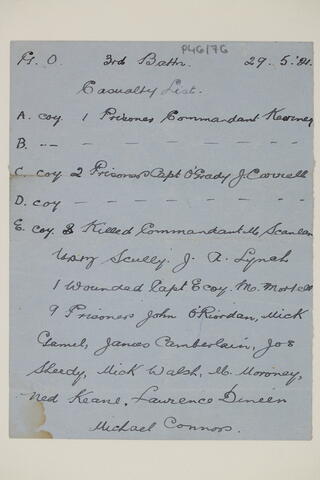 P46/76
G. O. 3rd Battn. 29. 5. '21.
Casualty List.
A. coy 1 Prisoner Commandant Kearney
B. -- — — — — — —
C. coy 2 Prisoners Capt O'Grady J. Carroll
D. coy — — — — — —
E. coy. 3 Killed Commandant M. Scanlan
Scully. J. A. Lynch
1 Wounded Capt E coy. M. Mortell
9 Prisoners John O'Riordan, Mick
Gamel, James Camberlain, Jos
Sheedy, Mick Walsh, M. Moroney,
Ned Keane, Laurence Dineen
Michael Connors.